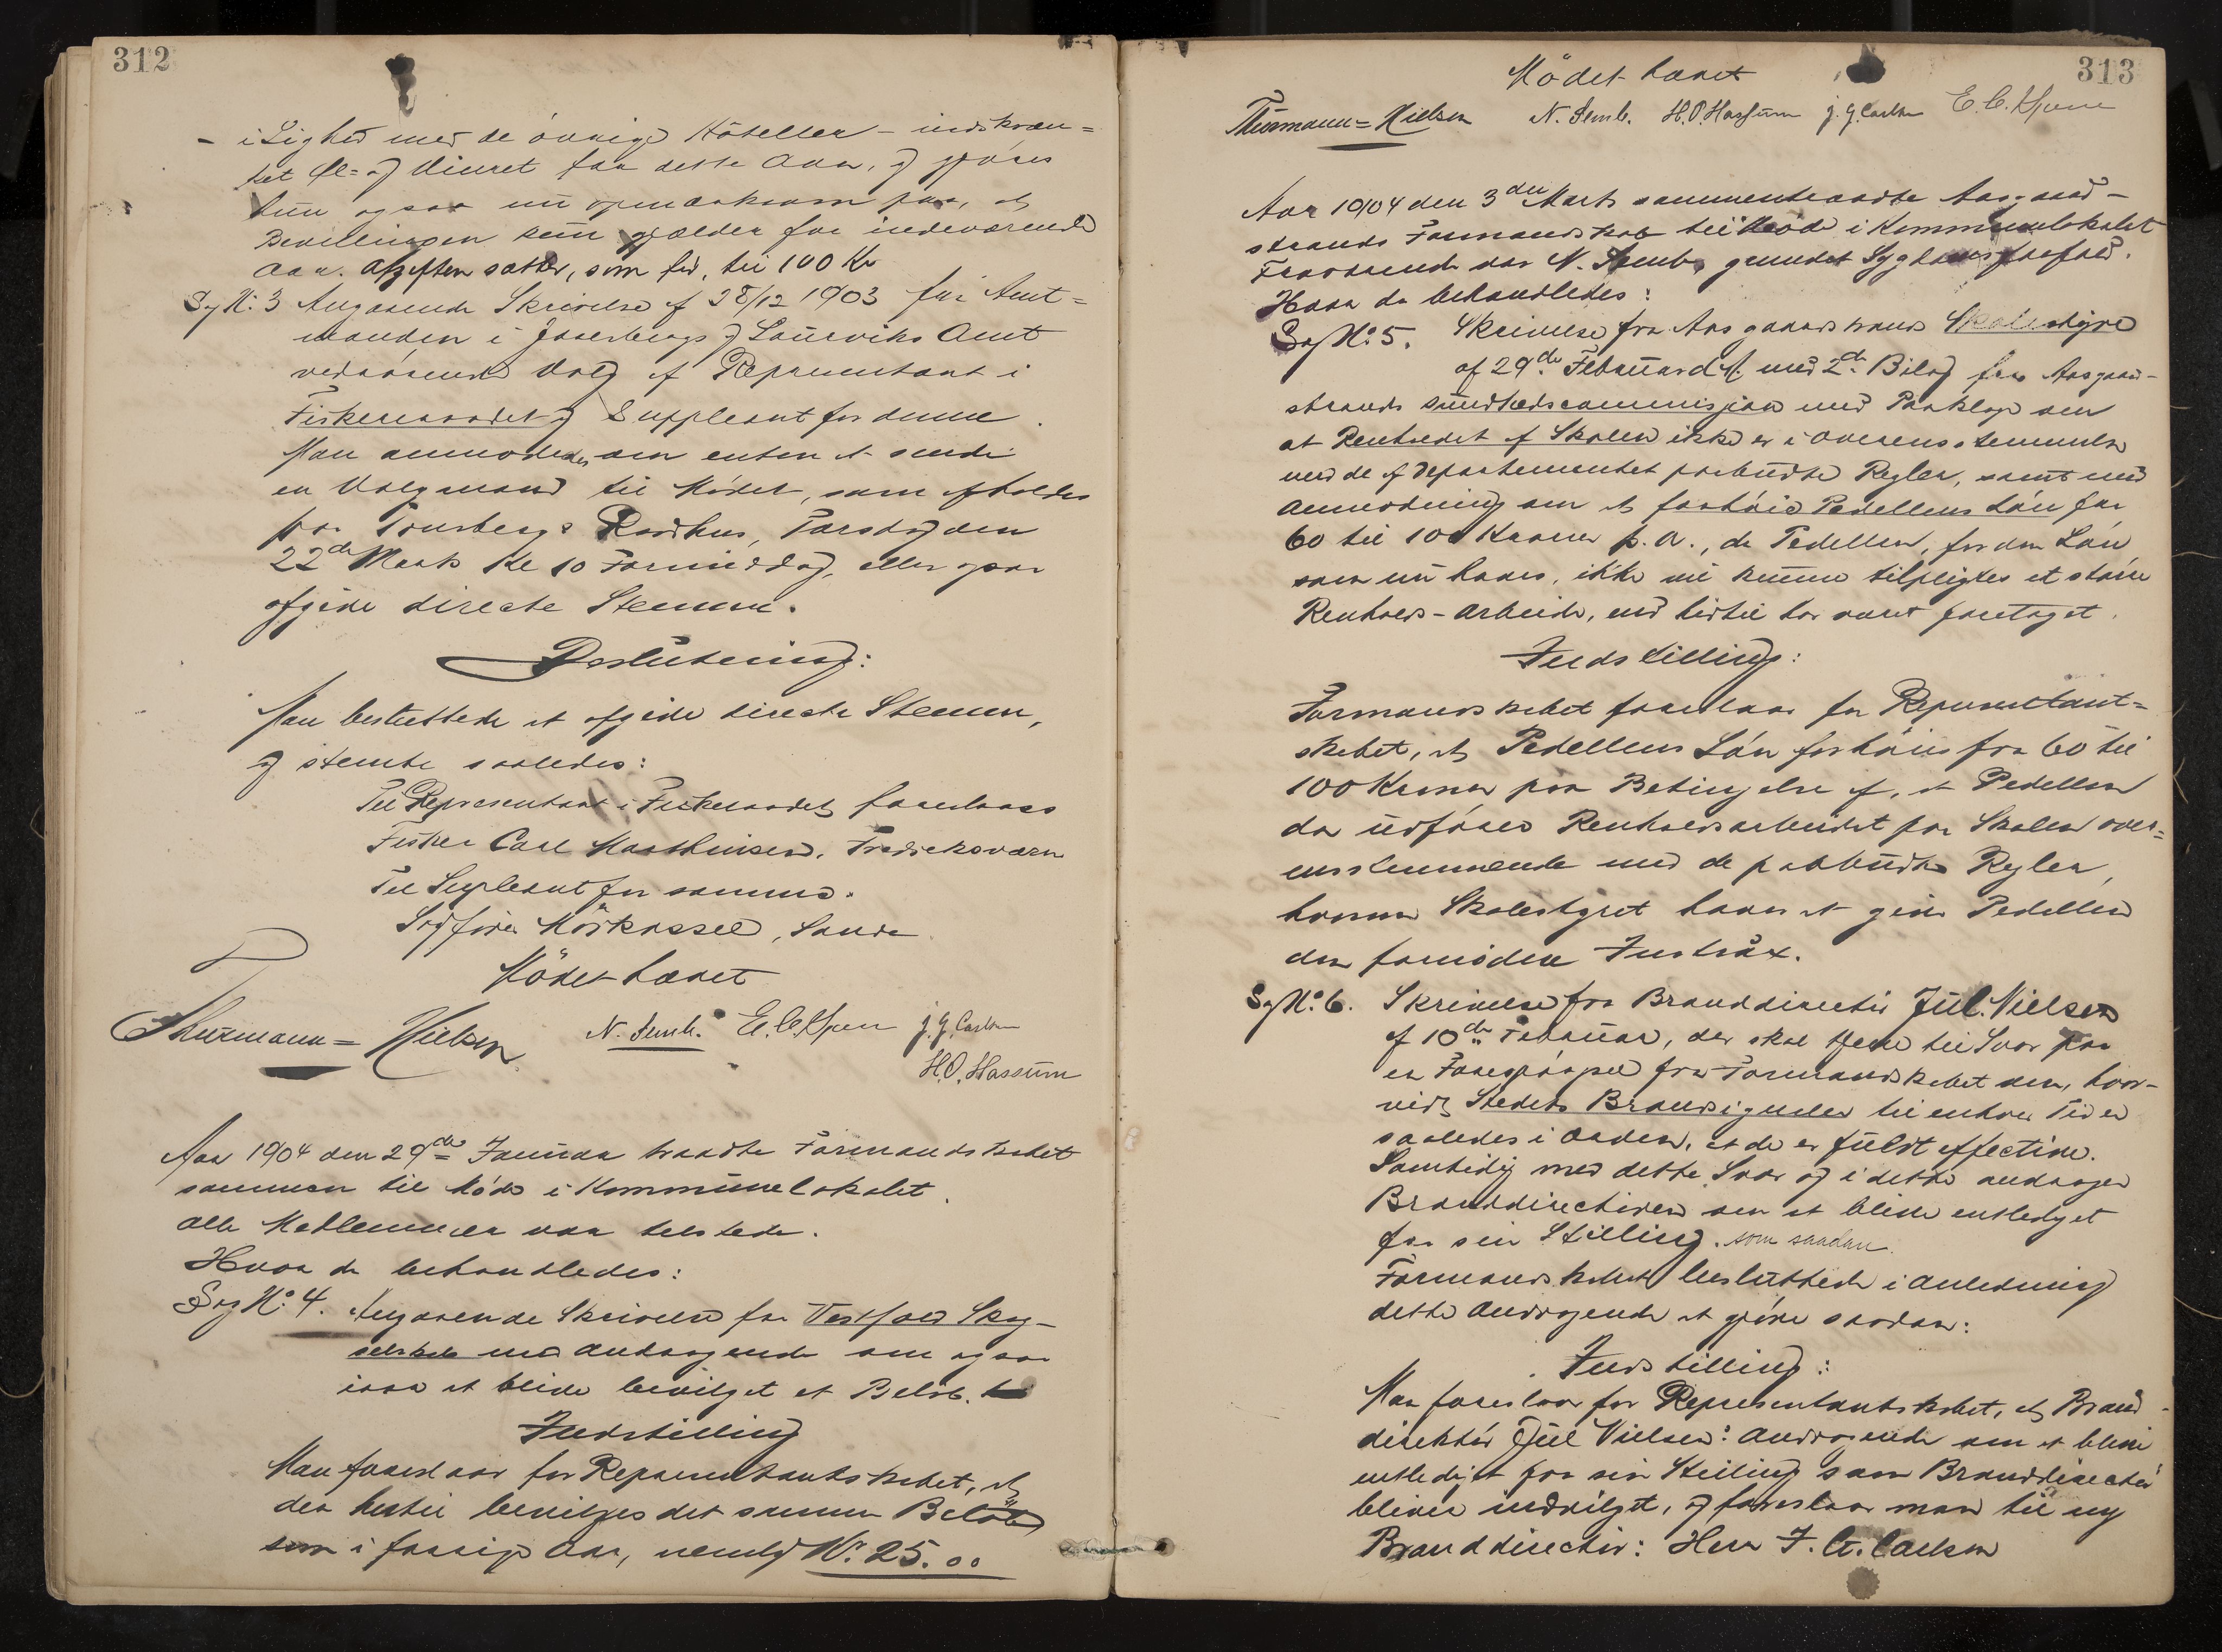 312
- i Lighed med de övrige Hôteller - indskræn=
ket Öl= og Vinret for dette Aar, og gjöres
hun ogsaa nu opmærksom paa, at
Bevillingen kun gjælder for indeværende
Aar. Afgiften sættes, som før, til 100 Kr
Sag No: 3 Angaaende Skrivelse af 28/12 1903 fra Amt=
manden i Jarlsbergs og Laurviks Amt
vedrörende Valg af Representant i
Fiskeriraadet og Suppleant for denne.
Man anmodedes om enten at sende
en Valgmand til Mödet, som afholdes
paa Tönsbergs Raadhus, Torsdag den
22de Marts Kl 10 Formiddag, eller ogsaa
afgive directe Stemme.
Beslutning:
Man besluttede at afgive directe Stemme,
og stemte saaledes:
Til Representant i Fiskeraadet foreslaaes
Fisker Carl Marthinsen, Fredriksværn
Til Supleant for samme.
Sagförer Mörkassel, Sande
Mödet hævet
Thurmann=Nielsen N. Semb. E. C. J. G. Carlsen
H. O. Hassum
Aar 1904 den 29de Januar traadte Formandskabet
sammen til Möde i Kommunelokalet.
Alle Medlemmer var tilstede.
Hvor da behandledes:
Sag No: 4. Angaaende Skrivelse fra Vestfold Skog-
selskab med Andragende om ogsaa
iaar at blive bevilget et Belöb.
Indstilling
Man foreslaar for Repræsentantskabet, at
der hertil bevilges det samme Belöb
som i forrige Aar, nemlig Kr. 25.00
313
Mödet hævet
Thurmann=Nielsen N. Semb. H. O. Hassum J. G. Carlsen E. C.
Aar 1904 den 3die Marts sammentraadte Aasgaard-
strands Formandskab til Möde i Kommunelokalet
Fraværende var N. Semb, grundet Sygdomsforfald.
Hvor da behandledes:
Sag No: 5. Skrivelse fra Aasgaardstrands Skolestyre
af 29de Februar d/A. med 2de Bilag fra Aasgaard-
strands Sundhedscommisjon med Paaklage om
at Renholdet af Skolen ikke er i Overensstemmelse
med de af Departementet paabudte Regler, samt med
Anmodning om at forhöie Pedellens Lön fra
60 til 100 Kroner p. a., da Pedellen, for den Lön
som nu haves, ikke vil kunne tilpligtes et större
Renholds-Arbeide, end hidtil har været foretaget.
Indstilling:
Formandskabet foreslaar for Representant=
skabet, at Pedellens Lön forhöies fra 60 til
100 Kroner paa Betingelse af, at Pedellen
da udförer Renholdsarbeidet paa Skolen over=
ensstemmende med de paabudte Regler,
hvorom Skolestyret haver at give Pedellen
den fornödne Instrux.
Sag No: 6. Skrivelse fra Branddirectör Jül. Nielsen
af 10de Februar, der skal tjene til Svar paa
en Forespörgsel fra Formandskabet om, hvor-
vidt Stedets Brandsignaler til enhver Tid er
saaledes i Orden, at de er fuldt effective.
Samtidig med dette Svar og i dette andrager
Branddirectören om at blive entlediget
fra sin Stilling, som saadan.
Formandskabet besluttede i Anledning
dette Andragende at gjöre saadan:
Indstilling:
Man foreslaar for Representantskabet, at Brand-
direktör Jül Nielsens Andragende om at blive
entlediget fra sin Stilling som Branddirectör
bliver indvilget, og foreslaar man til ny
Branddirectör: Herr J. G. Carlsen